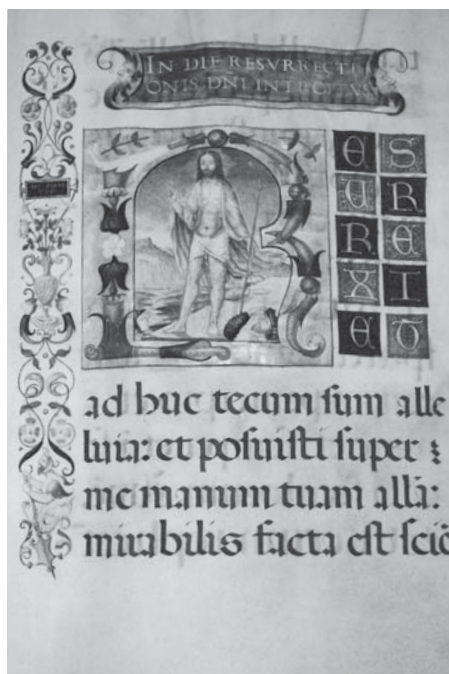 IN DIE RESVRRECTI
ONIS. DNI INTROITVS
R
E S
U R
R E
X I
E T
ad huc tecum ſum alle
luia: et poſuiſti ſuper
me manum tuam allã:
mirabilis facta eſt ſciẽ